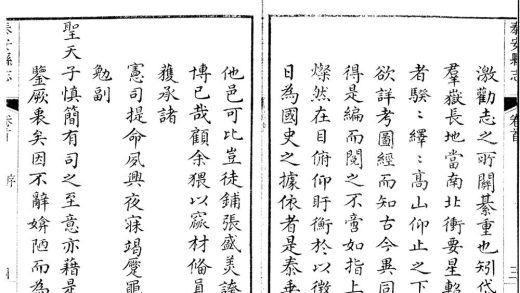 泰安縣志
卷首
三
激勸志之所關綦重也矧岱
羣嶽長地當南北衝要星軺
者騤:繹:髙山仰止之下
欲詳考圖經而知古今異同
得是編而閱之不啻如指上
燦然在目俯仰盱衡於以徴
日為國史之據依者是泰
他邑可比豈徒鋪張盛美誇
博已哉顧余猥以窳材備員
獲承諸
憲司提命夙興夜寐竭蹷黽
勉副
聖天子慎簡有司之至意亦藉是
鑒厥衷矣因不辭媕陋而為
泰安縣志
卷首
序